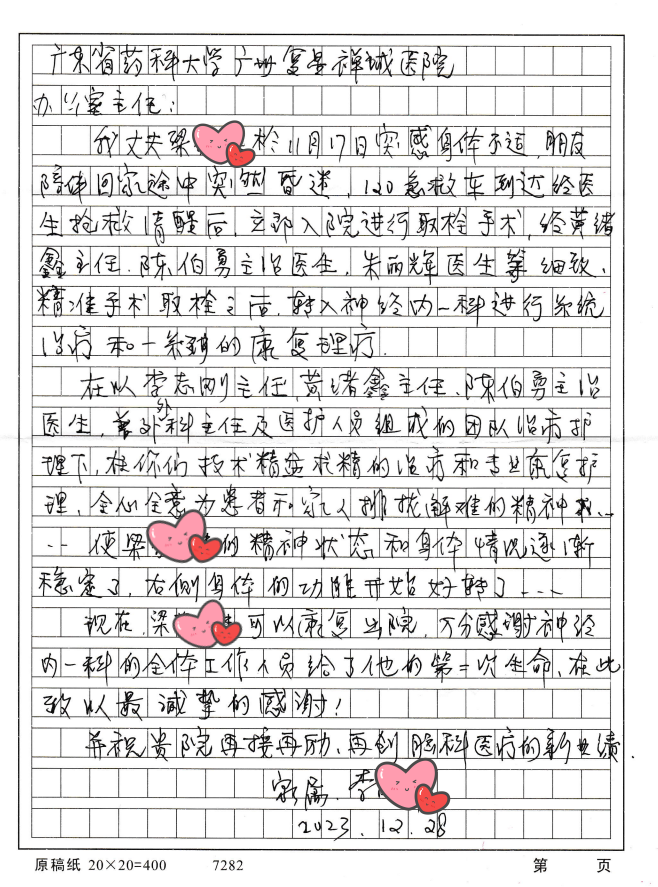 广东省药科大学广州复星禅城医院
办公室主任:
我丈夫梁 于11月17日突感身体不适,朋友
陪伴回家途中突然昏迷,120急救车到达经医
生抢救清醒后,立即入院进行取栓手术,经黄绪
鑫主任.陈伯勇主治医生,朱丽辉医生等细致、
精准手术取栓之后,转入神经内一科进行系统
治疗和一系列的康复理疗.
在以李志刚主任,黄绪鑫主任.陈伯勇主治
医生,外科主任及医护人员组成的团队治疗护
理下,在你们技术精益求精的治疗和专业康复护
理,全心全意为患者和家人排忧解难的精神下...
...使梁 的精神状态和身体情况逐渐
稳定了,右侧身体的功能开始好转了...
现在,梁 可以康复出院,万分感谢神经
内一科的全体工作人员给了他的第二次生命,在此
致以最诚挚的感谢!
并祝贵院再接再励、再创脑科医疗的新业绩.
家属.李
2023.12.28
原稿纸 20×20=400 7282 第 页